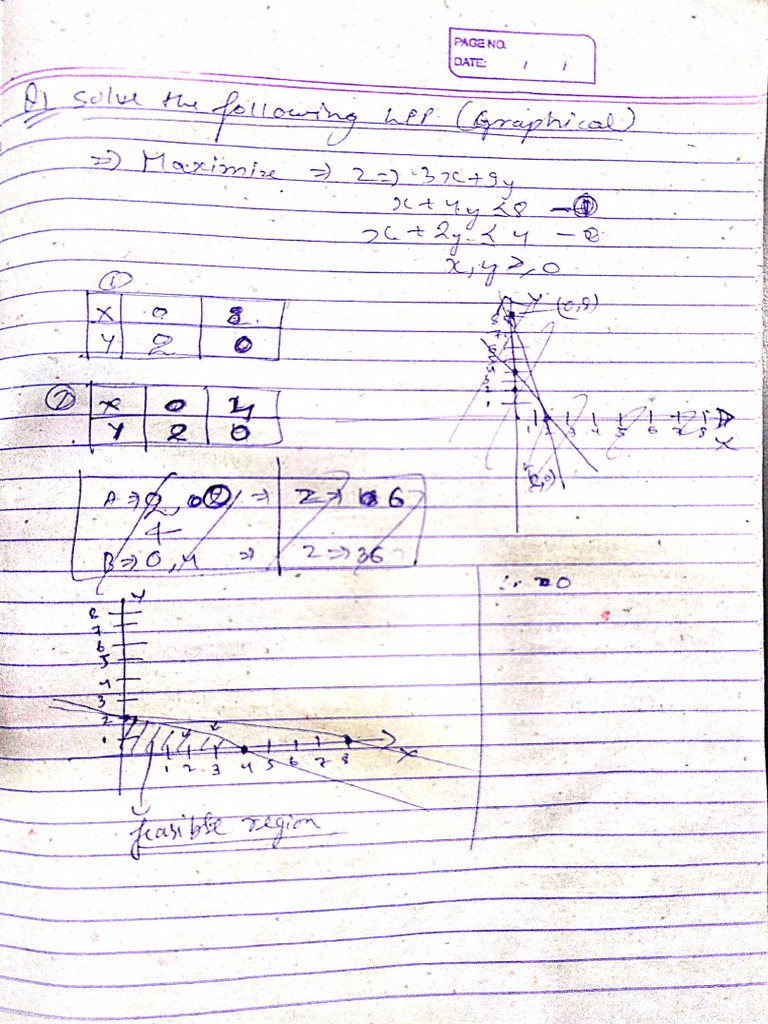 PAGE NO.
DATE: / /
Q1 Solve the following LPP (Graphical)
⇒ Maximize ⇒ Z ⇒ 3x+9y
x + 4y ≤ 8 - ①
x + 2y ≤ 4 - ②
x, y ≥, 0
①
X 0 8
Y 2 0
Y (0,8)
8
1 2 3 4 5 6 7 8
X
(2,0)
② X 0 4
Y 2 0
A ⇒ ⇒ Z ⇒ 6
B ⇒ 0, 4 ⇒ Z ⇒ 36
∴ 0
Y
8
7
6
5
4
3
2
1
1 2 3 4 5 6 7 8 X
feasible region